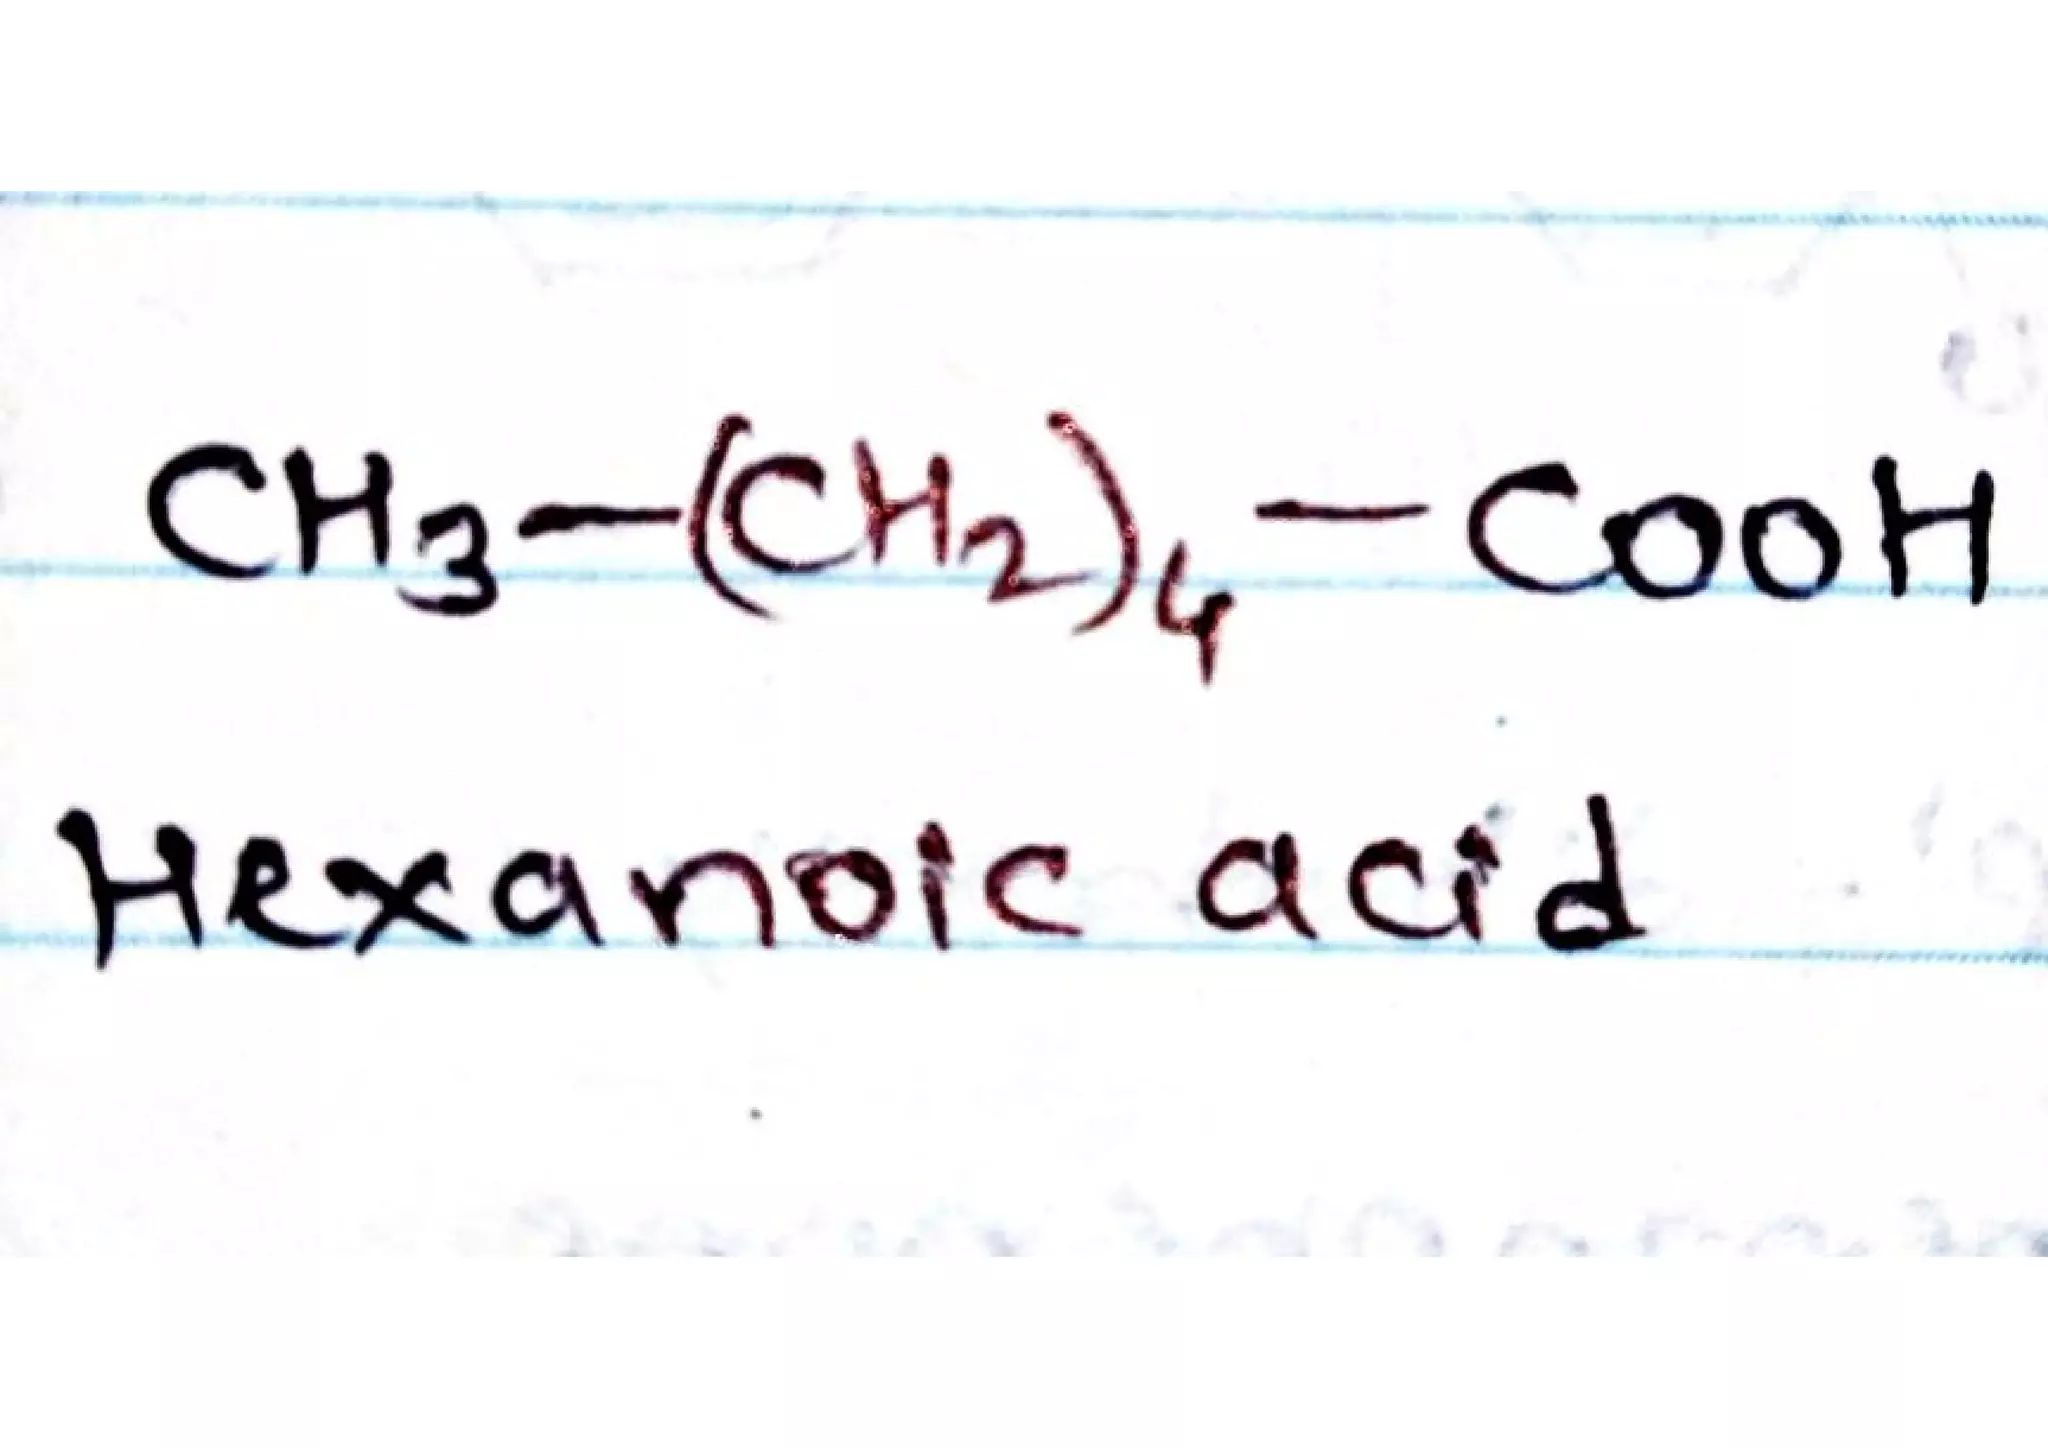 CH₃–(CH₂)₄–COOH
Hexanoic acid